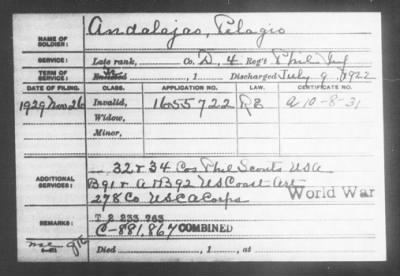 NAME OF SOLDIER: Andalajas, Pelagio
SERVICE: Late rank, Co. D, 4 Reg't Phil Inf
TERM OF SERVICE: Enlisted , 1 Discharged July 9, 1922
DATE OF FILING. CLASS. APPLICATION NO. LAW. CERTIFICATE NO.
1929 Nov 26 Invalid, 1655722 A 10-8-31
Widow,
Minor,
ADDITIONAL SERVICES: 32 & 34 Cos Phil Scouts USA
B 91 & A 1392 US Coast Art
278 Co USCA Corps World War
REMARKS: C-881,864 COMBINED
Died , 1 , at